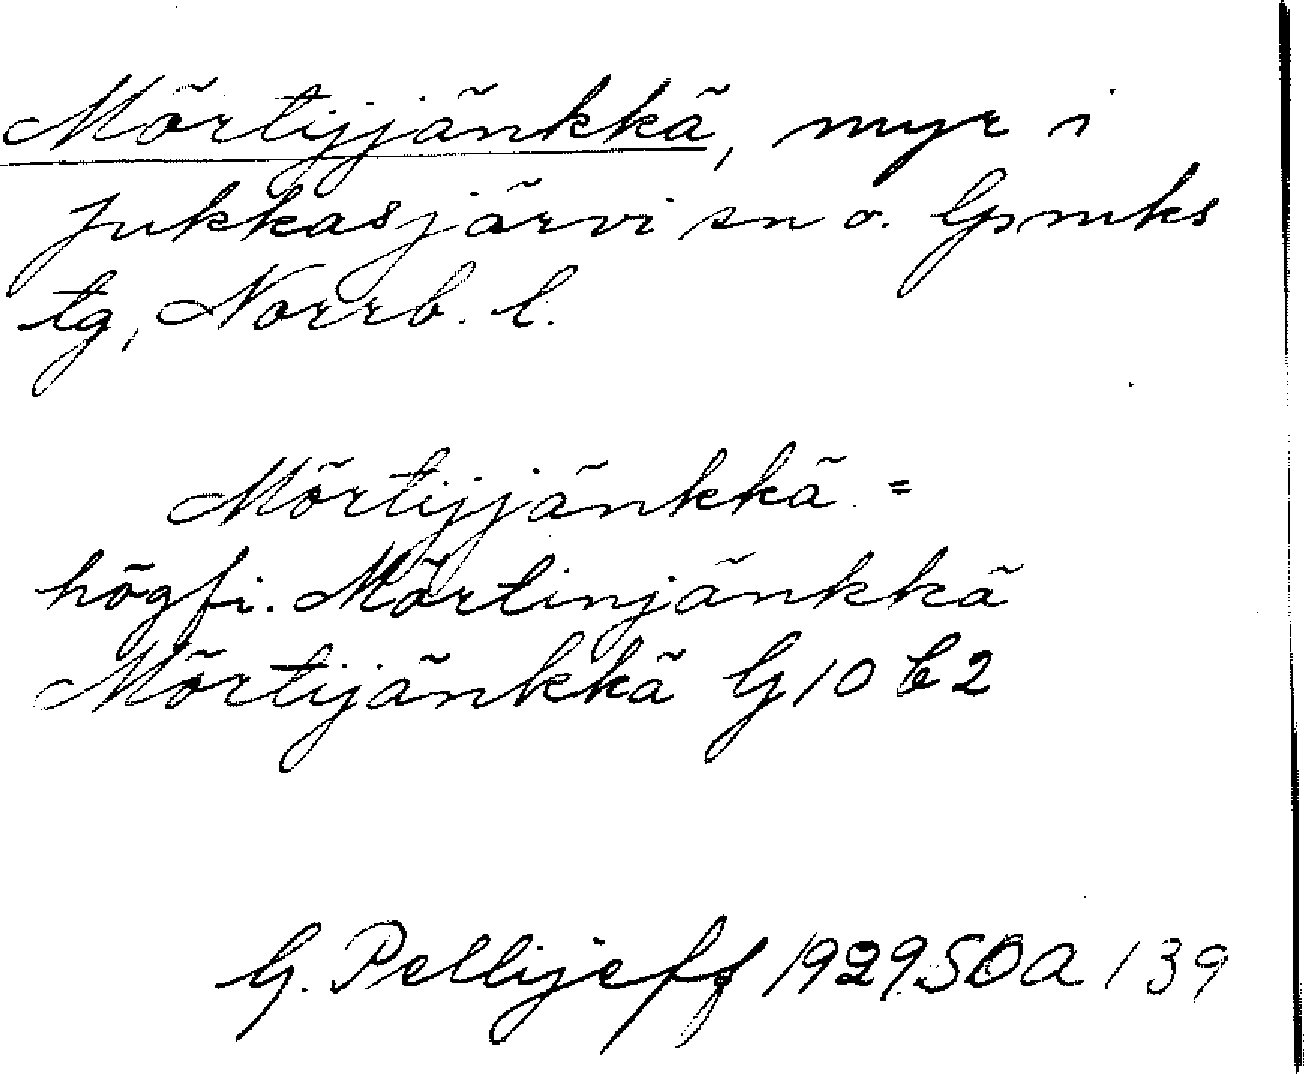 Mörtijjänkkä, myr i
Jukkasjärvi sn o. Gsmks
tg, Norrb. l.
Mörtijjänkkä =
högfi. Mörtinjänkkä
Mörtijänkkä G 10 b 2
G. Pellijeff 1929 SOA / 39